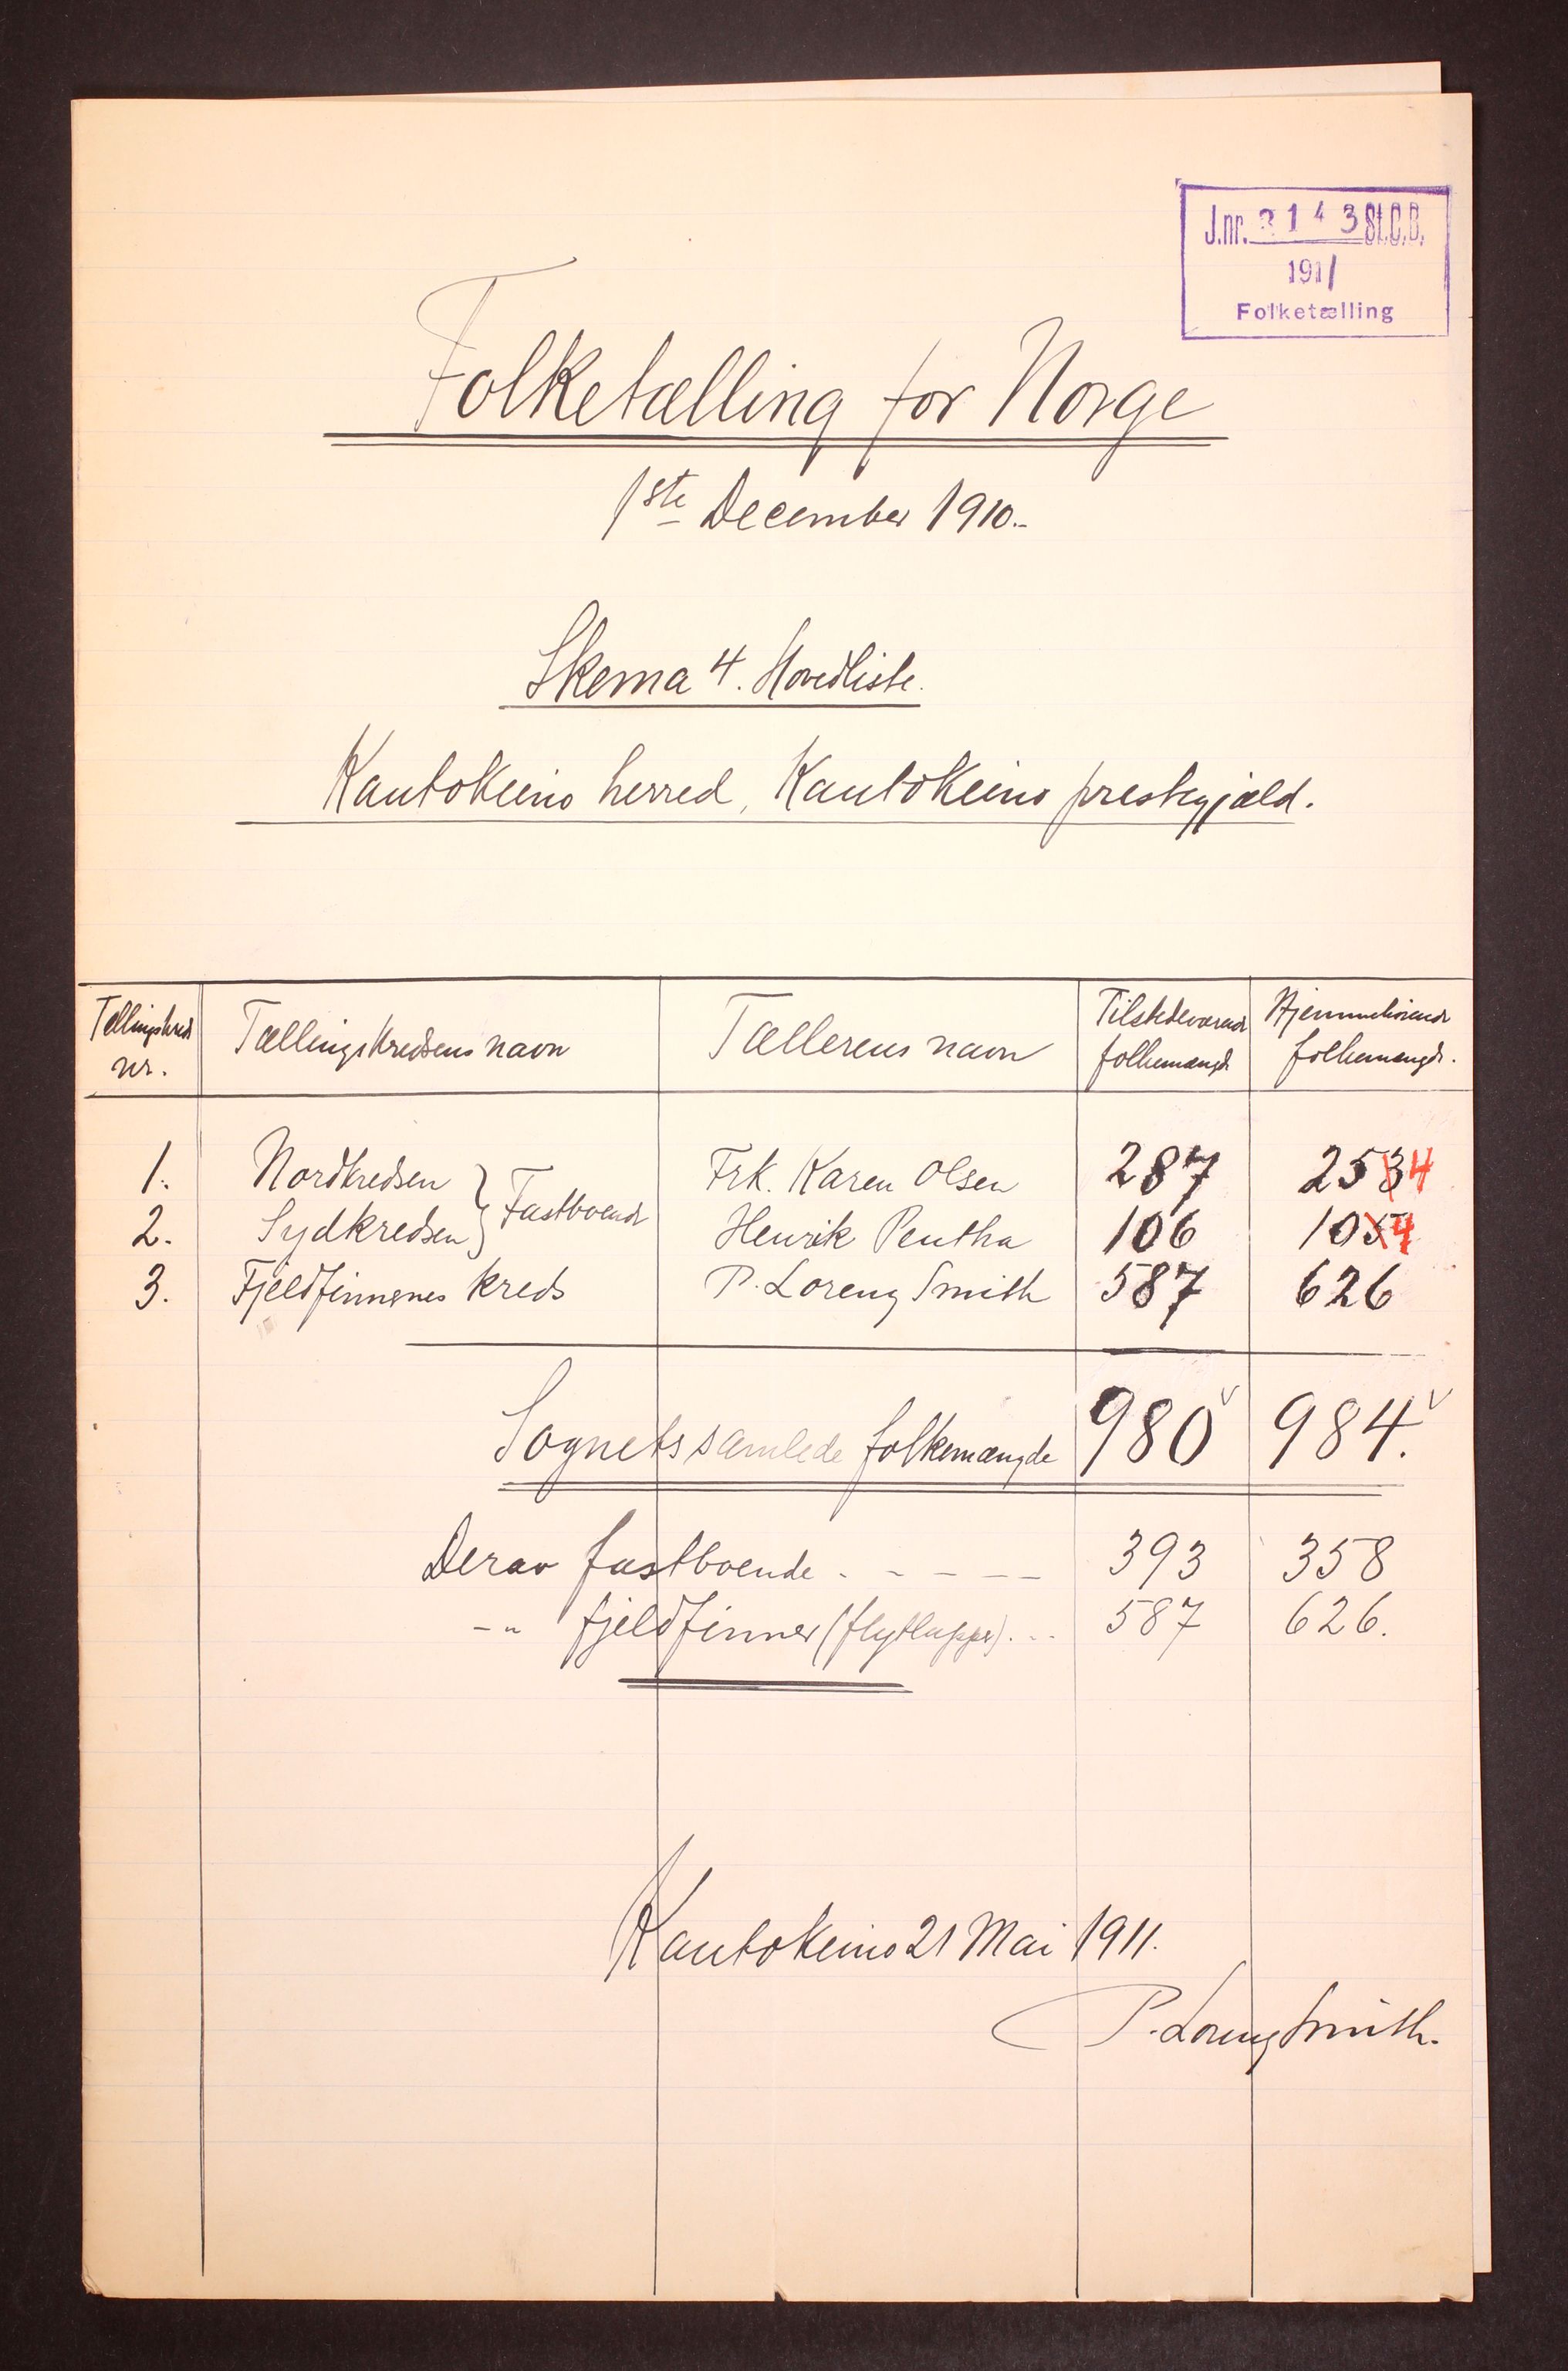 J.nr. 3143 St.C.B.
1911
Folketælling
Folketælling for Norge
1ste December 1910.-
Skema 4. Hovedliste.
Kautokeino herred, Kautokeino prestegjæld.
Tællingskreds nr. Tællingskredsens navn Tællerens navn Tilstedeværende folkemængde Hjemmehørende folkemængde.
1. Nordkredsen } Fastboende Frk. Karen Olsen 287 2534
2. Sydkredsen Henrik Pentha 106 1054
3. Fjeldfinnenes kreds P. Lorenz Smith 587 626
Sognets samlede folkemængde 980 984.
Derav fastboende - - - - - 393 358
-"- fjeldfinner (flytlapper). .. 587 626.
Kautokeino 21 Mai 1911.
P. Lorenz Smith.